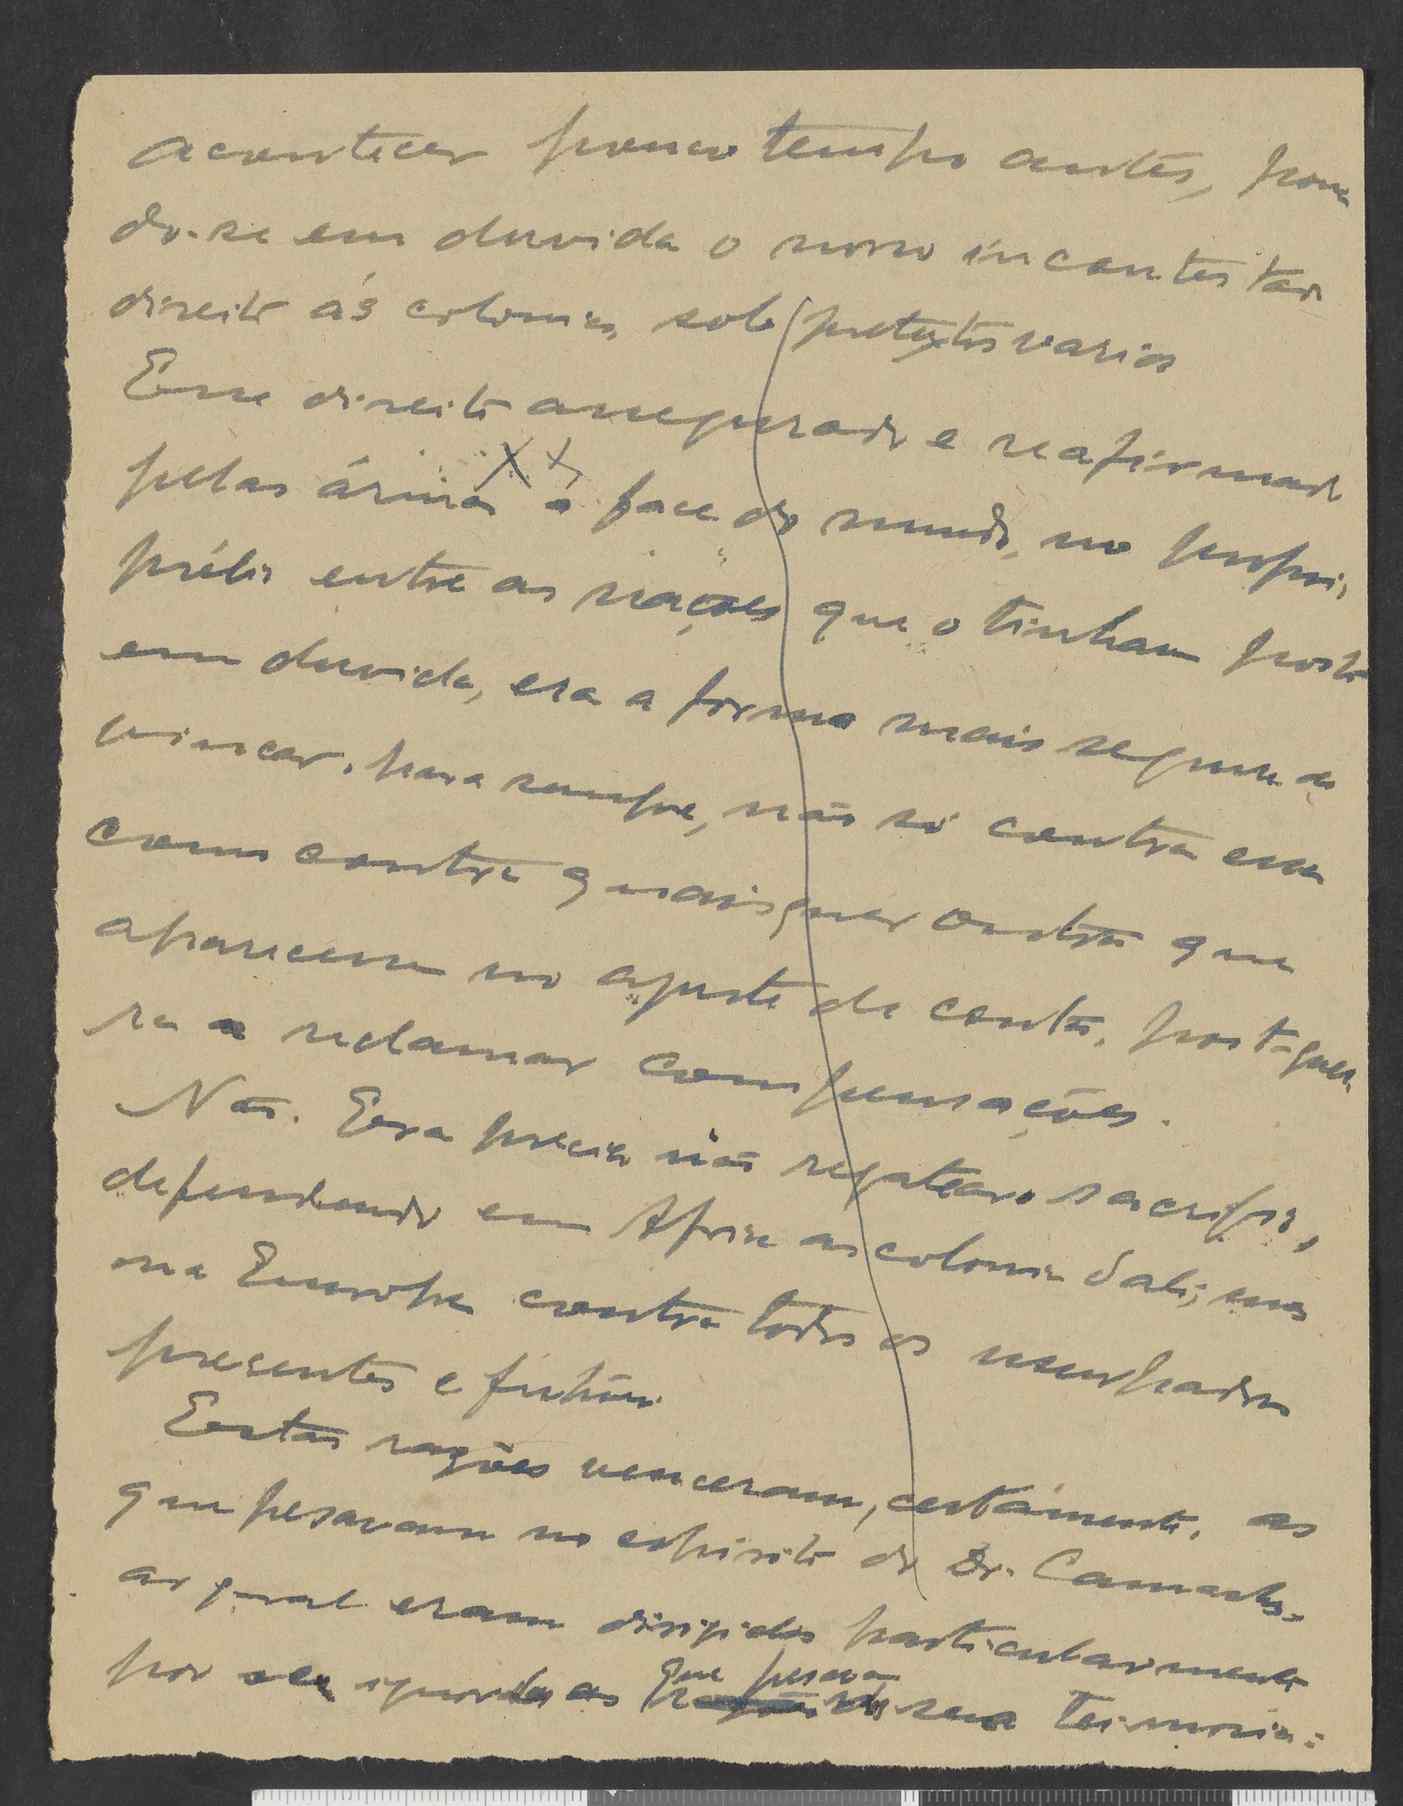 acontecer pouco tempo antes, pon
do-se em duvida o nosso incontestav
direito ás colonias, sob pretextos varios
Esse direito assegurado e reafirmado
pelas ármas á face do mundo, no proprio
prélio entre as nações que o tinham posto
em duvida, era a forma mais segura de
vincar, para sempre, não só contra essa
como contra quaisquer outras que
aparecem no ajuste de contas, post-guer
ra a reclamar compensações.
Não. Era preciso não regatear sacrificios,
defendendo em Africa as colonias dali, mas
na Europa contra todos os usurpadores
presentes e futuros.
Estas razões venceram, certámente, as
que pesavam no espirito do Dr. Camacho
ao qual eram dirigidas particularmente
por ser ignorada as
que pesavam
sua teimosia: